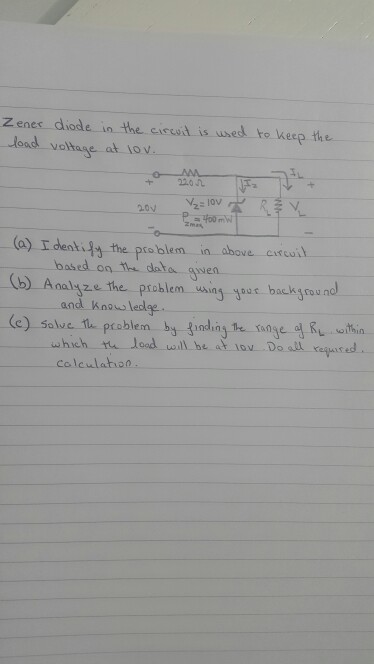 Zener diode in the circuit is used to keep the
load voltage at 10V.
220Ω
IL
+
Iz
+
20V
Vz=10V
RL
VL
Pzmax=400mW
-
-
(a) Identify the problem in above circuit
based on the data given
(b) Analyze the problem using your background
and knowledge.
(c) Solve the problem by finding the range of RL within
which the load will be at 10V Do all required
calculation.